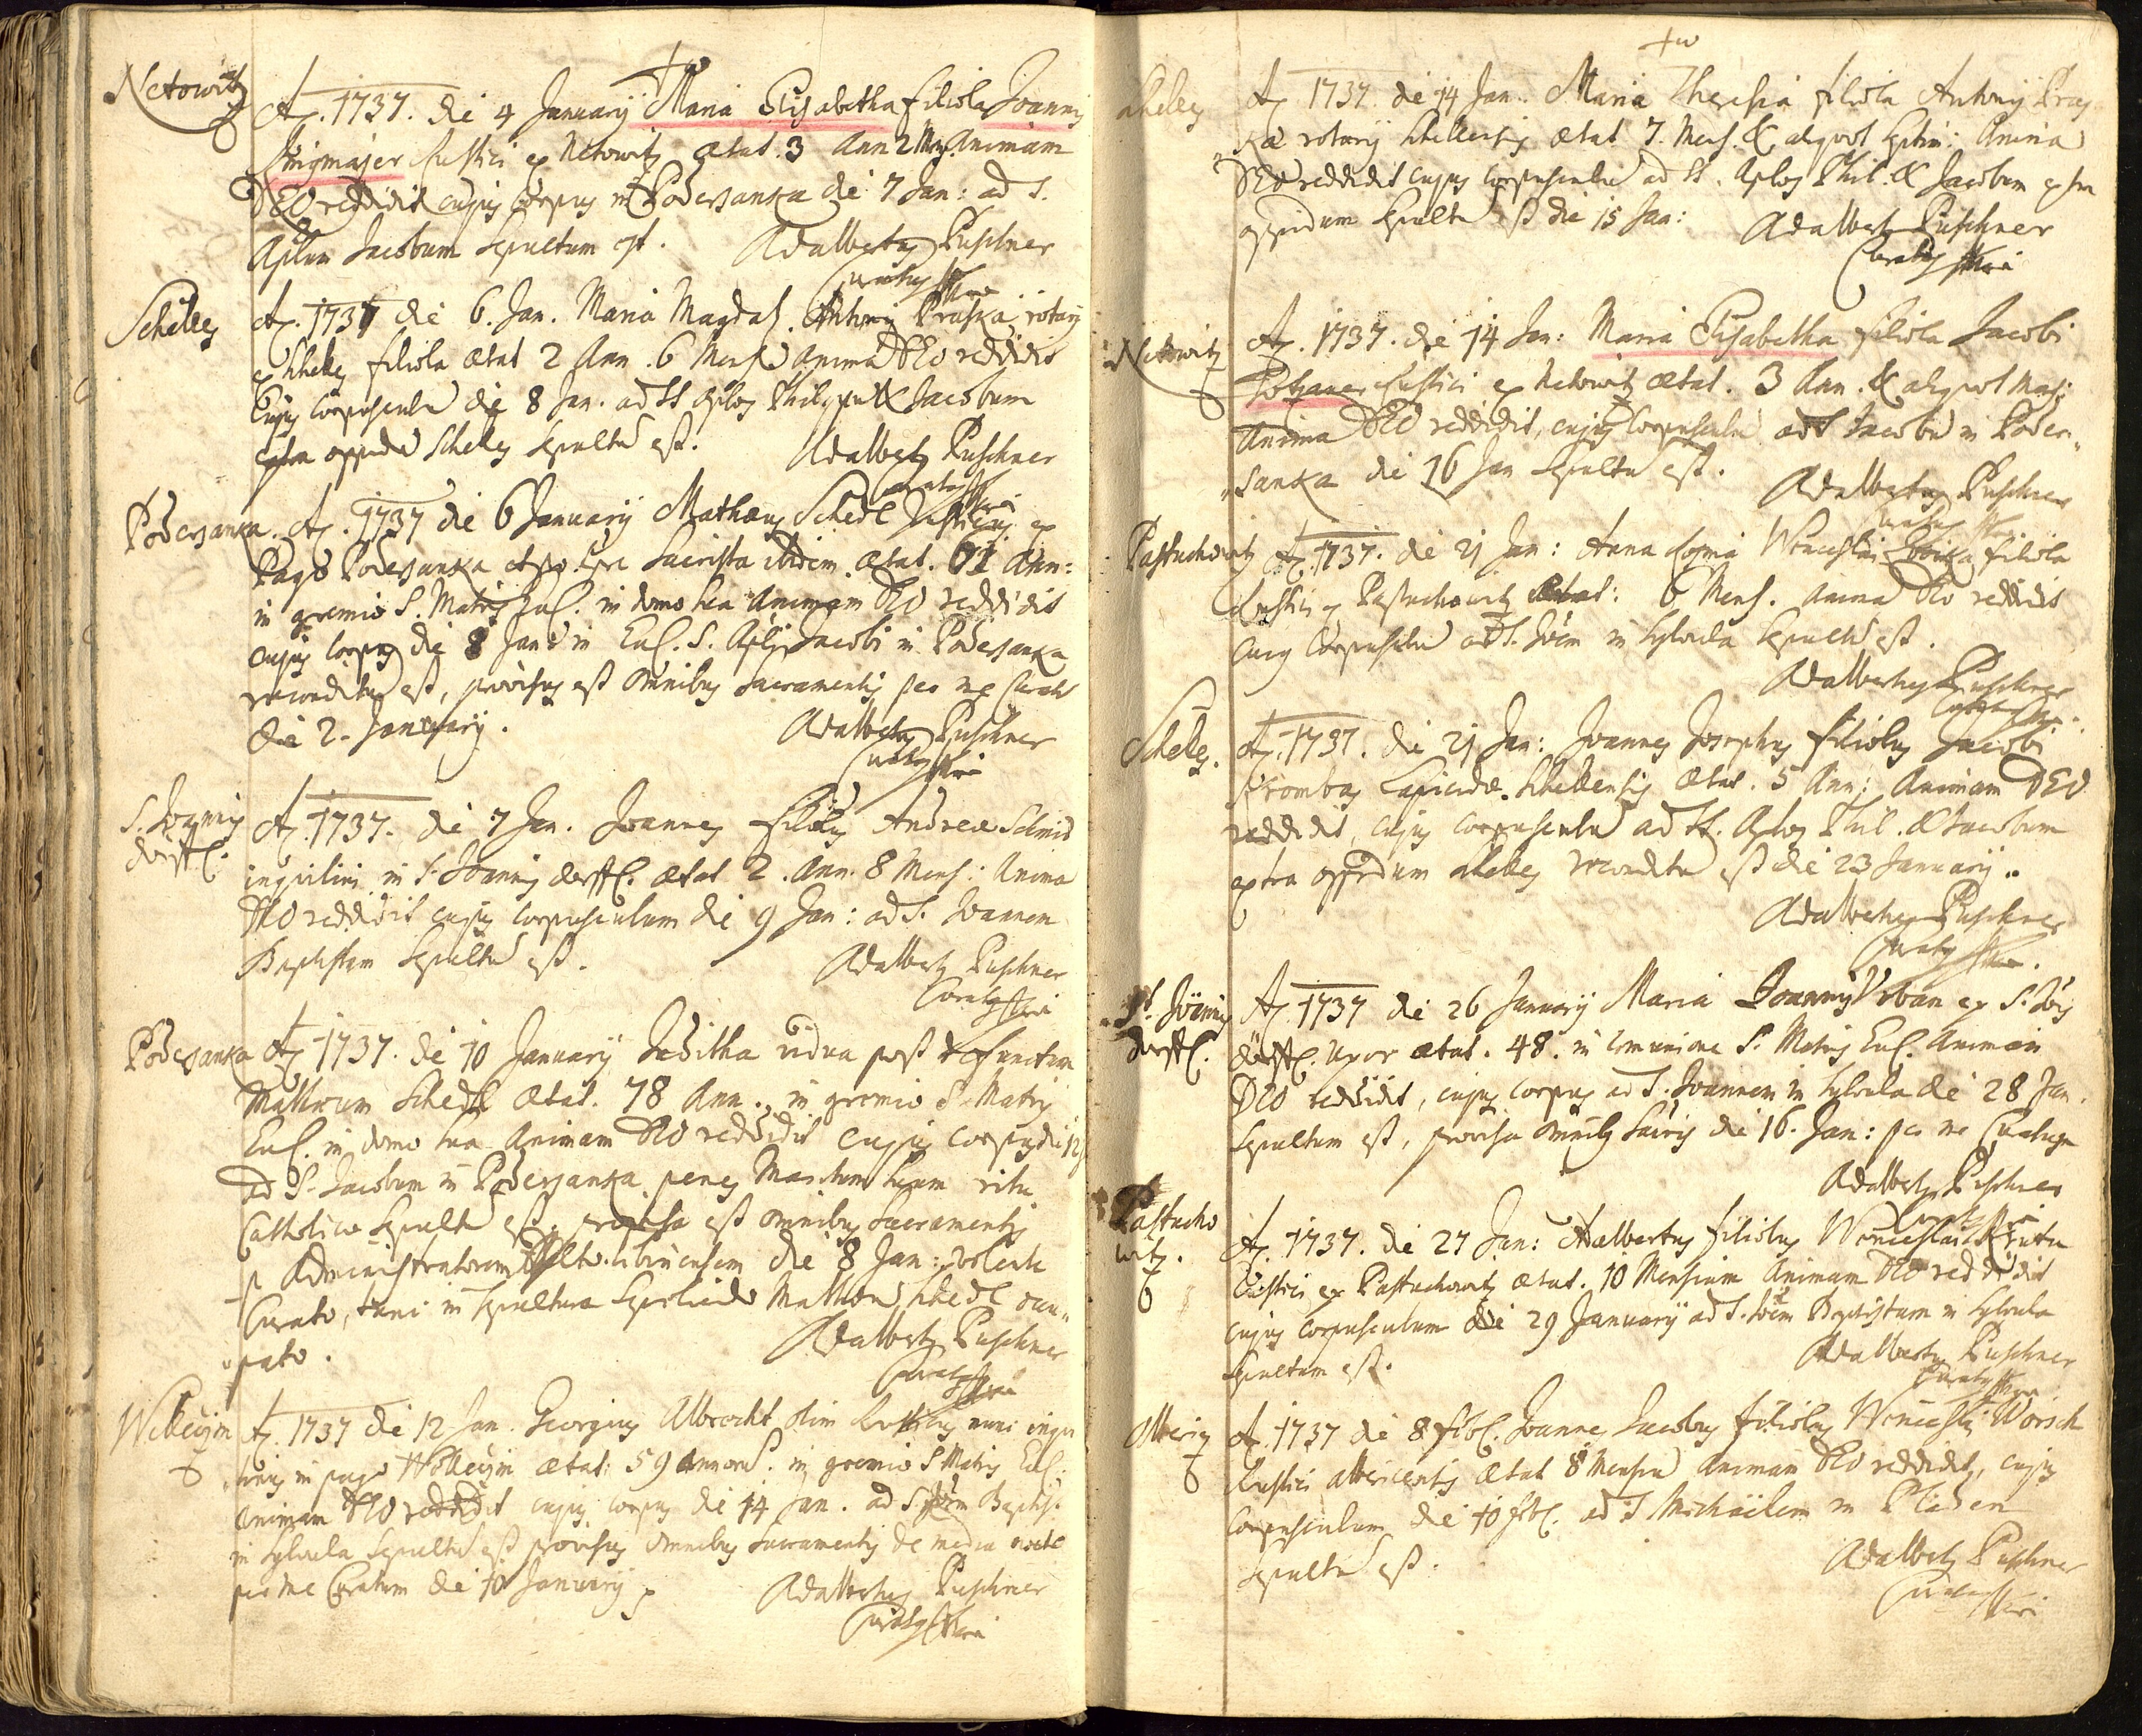 Netowitz
A. 1737. die 4 January Maria Elisabetha filiola Joannis
rustici ex Netowitz ætat. 3 Ann 2 Mens. Animam
DEO reddidit cujus corpus in Podersanka die 7 Jan: ad S.
Aplum Jacobum sepultum est. Adalbertus Puschner
Curatus
Scheles
A. 1737 die 6. Jan. Maria Magdal. Antony Praska rotary
ex Scheles filiola ætat 2 Ann. 6 Mens. anima DEO reddidit
cujus corpusculu die 8 Jan. ad SS Aplos Philippu & Jacobum
extra oppidu Scheles sepultu est. Adalbertus Puschner
Curatus
Podersanka. A. 1737 die 6 January Mathæus Schedl rusticus ex
Pago Podersanka et Sacrista ibidem ætat. 61 Ann:
in gremio S. Matris Eccl. in domo sua Animam DEO reddidit
cujus corpus die 8 Jan in Eccl. S. Apli Jacobi in Podersanka
reconditu est, provisus est omnibus Sacramentis per me Curatu
die 2. January. Adalbertus Puschner
Curatus
S. Joannis
dorff.
A. 1737. die 7 Jan. Joannes filiolus Andreæ Schmid
inquilini in S. Joannis dorff. ætat 2. Ann. 8 Mens: Anima
DEO reddidit cujus corpusculum die 9 Jan: ad S. Joannem
Baptistam sepultu est. Adalbertus Puschner
Curatus
Podersanka A. 1737. die 10 January Juditha vidua post defunctum
Mathæum Schedl ætat. 78 Ann. in gremio S. Matris
Eccl. in domo sua Animam DEO reddidit cujus corpus die 12
ad S. Jacobum in Podersanka penes Maritum suum ritu
Catholico sepultu est, provisa est omnibus Sacramentis
p Administratorem die 8 Jan:
Curato, in sepultura Mathæu Schedl occu-
-pato. Adalbertus Puschner
Curatus
Welleczin A. 1737 die 12 Jan. Georgius Albrecht olim rusticus nunc inqui
-linus in pago Welleczin ætat: 59 Annoru. in gremio S Matris Eccl:
Animam DEO reddidit cujus corpus die 14 Jan. ad S. Joem Baptist.
in Sylvula sepultu est provisus omnibus Sacramentis de media nocte
per me Curatum die 10 January. Adalbertus Puschner
Curatus
Scheles
A. 1737. die 14 Jan: Maria Theresia filiola Antony Pras-
-ka rotary Schelensis ætat 7. Mens. & aliquot Septim: Anima
DEO reddidit cujus corpusculu ad SS. Aplos Phil. & Jacobum extra
oppidum sepultu est die 15 Jan: Adalbertus Puschner
Curatus
Netowitz
A. 1737. die 14 Jan: Maria Elisabetha filiola Jacobi
rustici ex Netowitz ætat. 3 Ann. & aliquot Mens:
Anima DEO reddidit, cujus corpusculu ad S Jacobu in Poder-
-sanka die 16 Jan sepultu est. Adalbertus Puschner
Curatus
Pastuchowitz A. 1737. die 21 Jan: Anna Wenceslai filiola
rustici ex Pastuchowitz ætat: 6 Mens. anima DEO reddidit
cujus corpusculu ad S. Joem in Sylvula sepultu est.
Adalbertus Puschner
Curatus
Scheles. A. 1737. die 21 Jan: Joannes Josephus filiolus Jacobi
Lapicidæ Schelensis ætat. 5 Ann: Animam DEO
reddidit, cujus corpusculu ad SS. Aplos Phil. & Jacobum
extra oppidum Scheles reconditu est die 23 January.
Adalbertus Puschner
Curatus
S. Joannis
dorff.
A. 1737 die 26 January Maria Joannis Urban ex S. Jois
dorff. Uxor ætat. 48. in comunione S. Matris Eccl. Animam
DEO reddidit, cujus corpus ad S. Joannem in Sylvula die 28 Jan.
sepultum est, provisa omnibus Sacris die 16. Jan: per me Curatum
Adalbertus Puschner
Curatus
Pastucho
witz.
A. 1737. die 27 Jan: Adalbertus filiolus Wenceslai
rustici ex Pastuchowitz ætat. 10 Mensium Animam DEO reddidit
cujus corpusculum die 29 January ad S. Joem Baptistam in Sylvula
sepultum est. Adalbertus Puschner
Curatus
A. 1737 die 8 Febr. Joannes Jacobus filiolus Wenceslai Worisch
rustici ætat 8 Mensiu Animam DEO reddidit, cujus
corpusculum die 10 Febr. ad S Michaëlem in Pladen
sepultu est. Adalbertus Puschner
Curatus